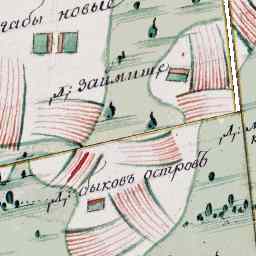 чабы новые
Д: Займище
Д: Быковъ островъ
Д:
Д: